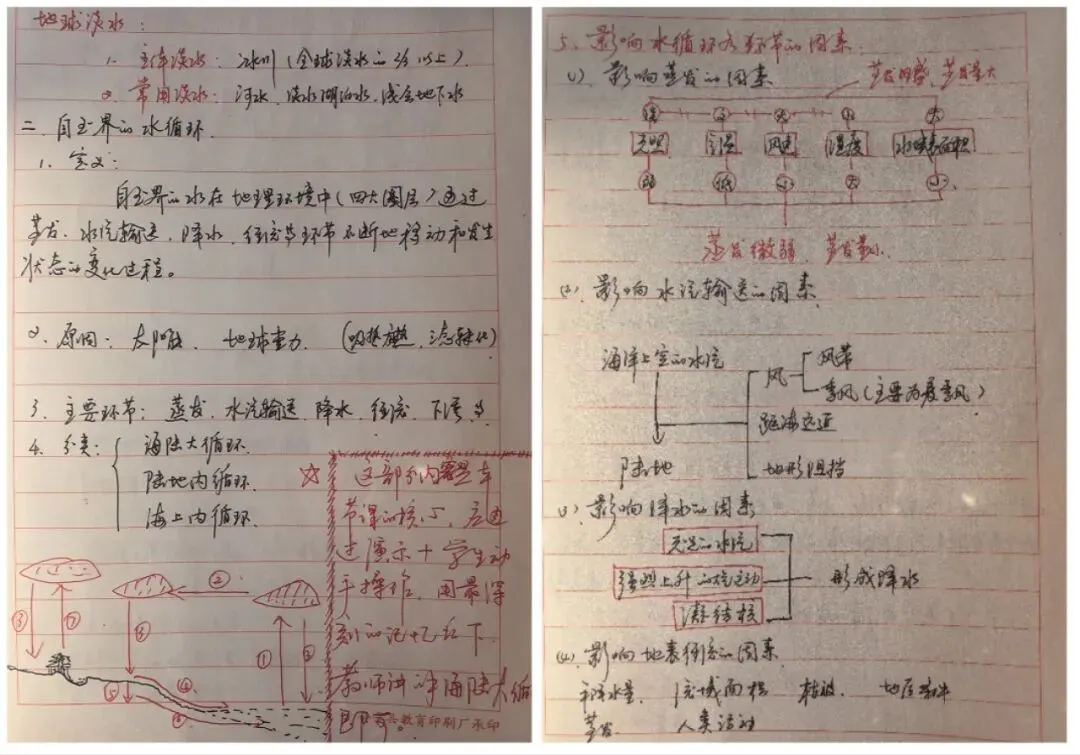 地球淡水：
1. 主体淡水：冰川（全球淡水的2/3以上）
2. 常用淡水：河水、淡水湖泊水、浅层地下水
二、自然界的水循环
1. 定义：
自然界的水在地理环境中（四大圈层）通过
蒸发、水汽输送、降水、径流等环节不断地移动和发生
状态的变化过程。
2. 原因：太阳能、地球重力（吸热放热、三态转化）
3. 主要环节：蒸发、水汽输送、降水、径流、下渗等
4. 分类：
海陆大循环
陆地内循环
海上内循环
☆ 这部分内容是本
节课的核心，应通
过演示+学生动
手操作，用最深
刻的记忆记下
教师讲评海陆大循
教育印刷厂承印
② ③ ⑦ ⑧ ① ⑤ ④
5. 影响水循环各环节的因素
(1) 影响蒸发的因素
蒸发旺盛，蒸发量大
强 高 大 小 大
光照 气温 风速 湿度 水域表面积
弱 低 小 大 小
蒸发微弱，蒸发量小
(2) 影响水汽输送的因素
海洋上空的水汽
陆地
风
风带
季风（主要为夏季风）
距海远近
地形阻挡
(3) 影响降水的因素
充足的水汽
强烈上升的气流运动
凝结核
形成降水
(4) 影响地表径流的因素
降水量 流域面积 植被 地质条件
蒸发 人类活动